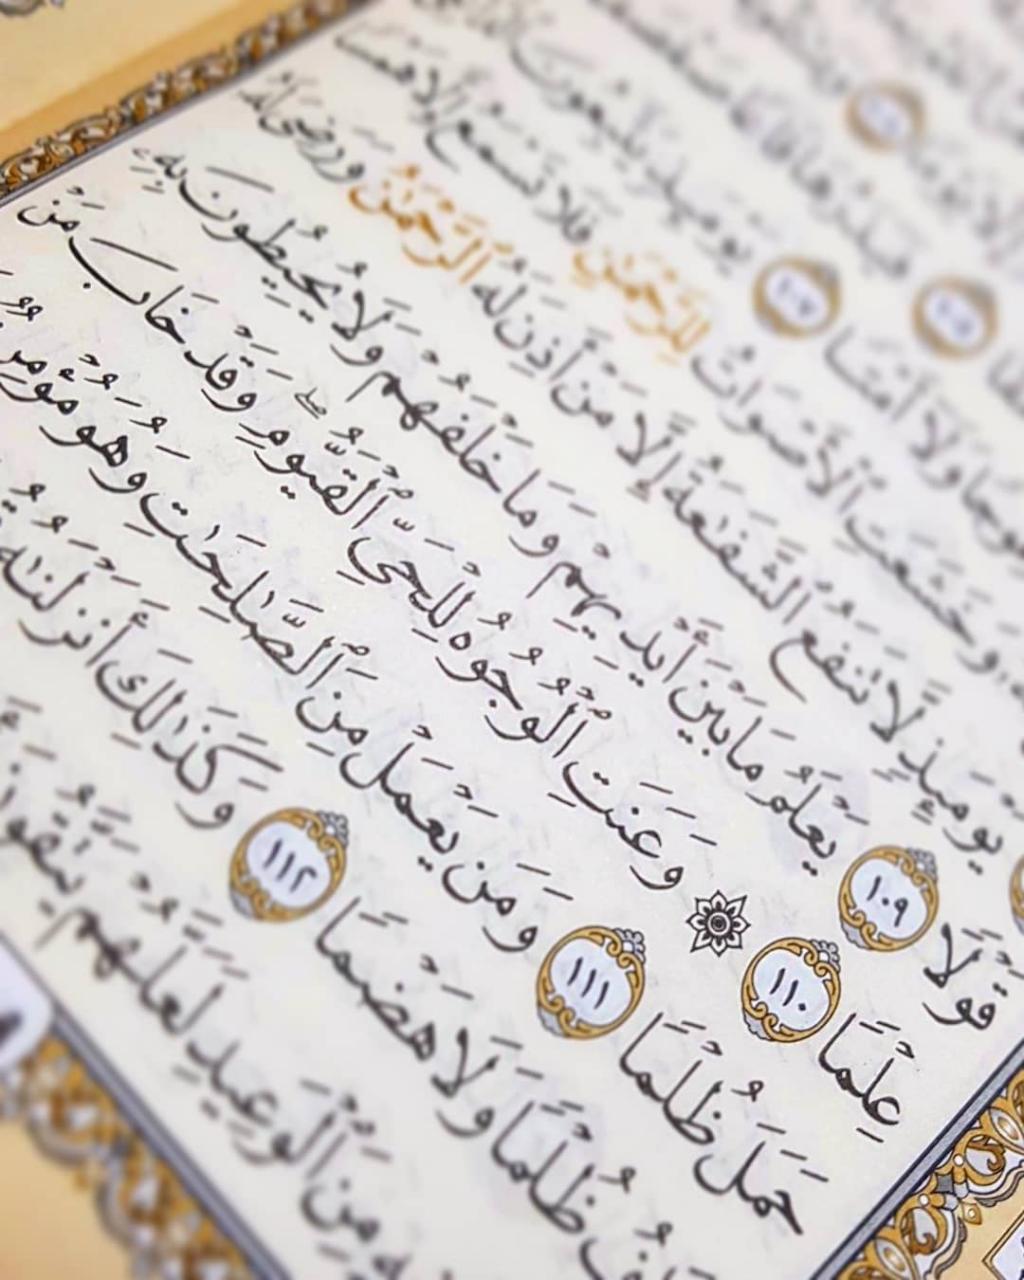 عِوَجًا وَلَآ أَمْتًا ١٠٧ يَوْمَئِذٍ يَتَّبِعُونَ
وَخَشَعَتِ ٱلْأَصْوَاتُ لِلرَّحْمَٰنِ فَلَا تَسْمَعُ إِلَّا هَمْسًا
يَوْمَئِذٍ لَّا تَنفَعُ ٱلشَّفَٰعَةُ إِلَّا مَنْ أَذِنَ لَهُ ٱلرَّحْمَٰنُ وَرَضِىَ لَهُۥ
قَوْلًا ١٠٩ يَعْلَمُ مَا بَيْنَ أَيْدِيهِمْ وَمَا خَلْفَهُمْ وَلَا يُحِيطُونَ بِهِۦ
عِلْمًا ١١٠ ۞ وَعَنَتِ ٱلْوُجُوهُ لِلْحَىِّ ٱلْقَيُّومِۖ وَقَدْ خَابَ مَنْ
حَمَلَ ظُلْمًا ١١١ وَمَن يَعْمَلْ مِنَ ٱلصَّٰلِحَٰتِ وَهُوَ مُؤْمِنٌ
ظُلْمًا وَلَا هَضْمًا ١١٢ وَكَذَٰلِكَ أَنزَلْنَٰهُ
مِنَ ٱلْوَعِيدِ لَعَلَّهُمْ يَتَّقُونَ